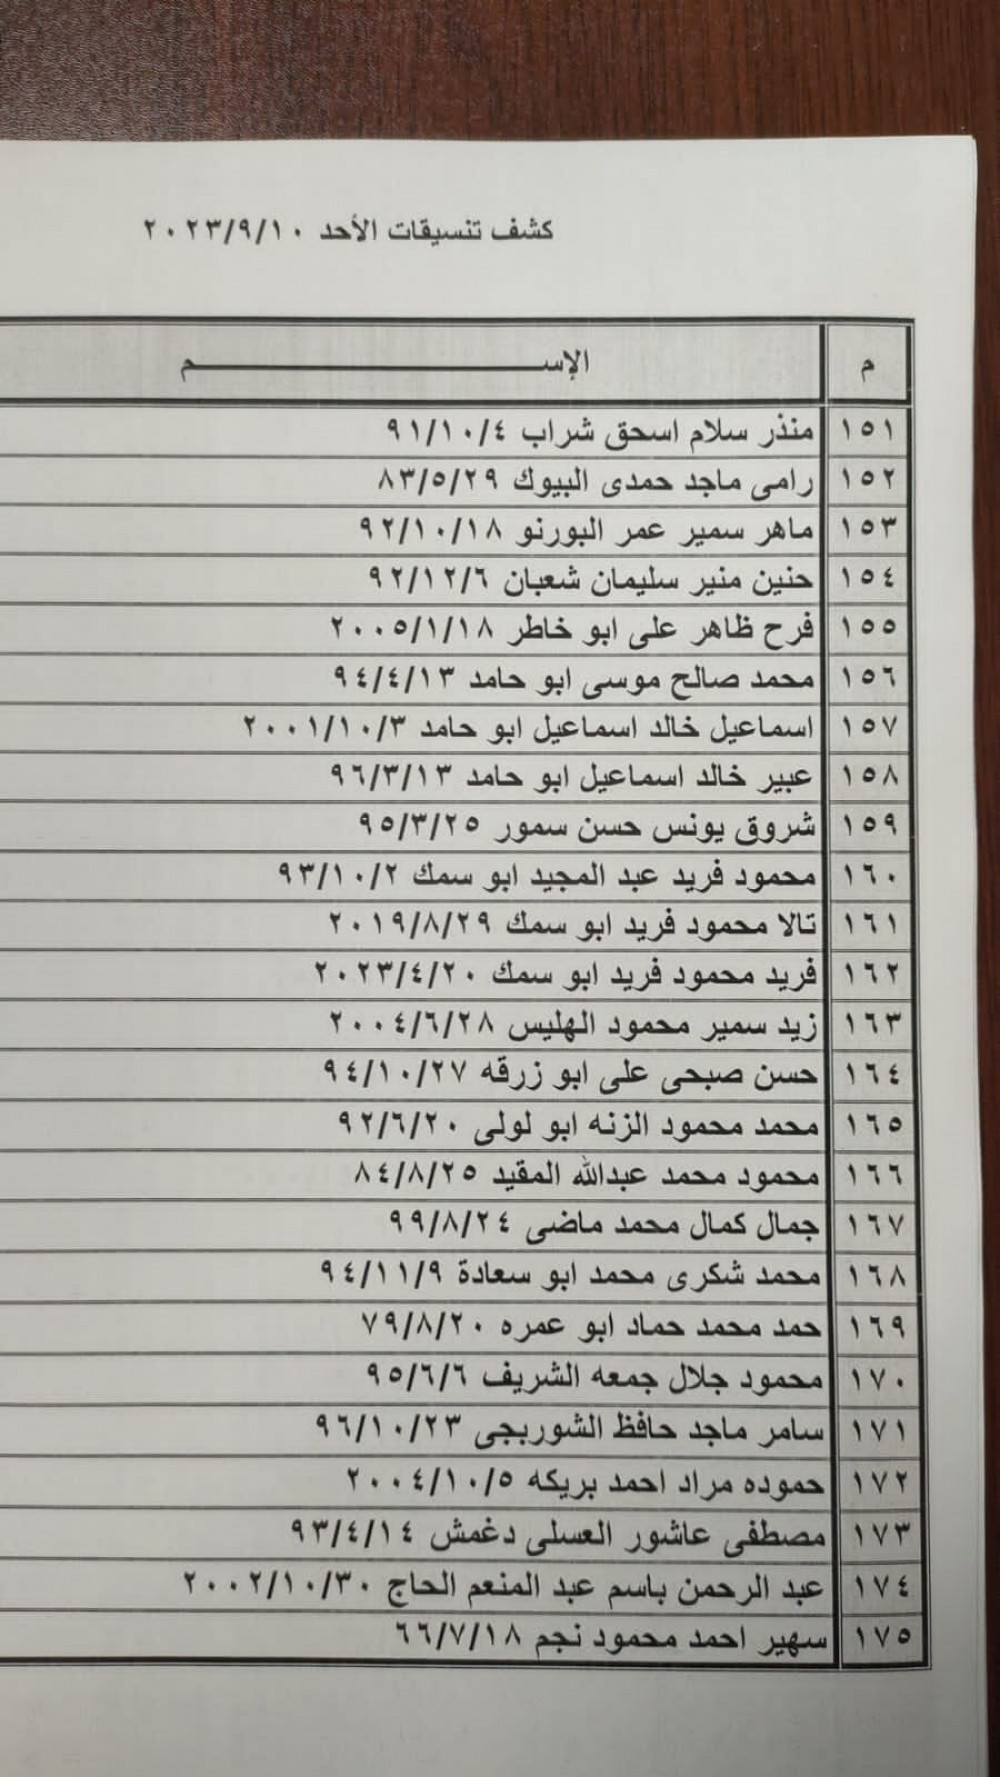 كشف تنسيقات الأحد ٢٠٢٣/٩/١٠
م الإســـــــــــم
١٥١ منذر سلام اسحق شراب ٩١/١٠/٤
١٥٢ رامى ماجد حمدى البيوك ٨٣/٥/٢٩
١٥٣ ماهر سمير عمر البورنو ٩٢/١٠/١٨
١٥٤ حنين منير سليمان شعبان ٩٢/١٢/٦
١٥٥ فرح ظاهر على ابو خاطر ٢٠٠٥/١/١٨
١٥٦ محمد صالح موسى ابو حامد ٩٤/٤/١٣
١٥٧ اسماعيل خالد اسماعيل ابو حامد ٢٠٠١/١٠/٣
١٥٨ عبير خالد اسماعيل ابو حامد ٩٦/٣/١٣
١٥٩ شروق يونس حسن سمور ٩٥/٣/٢٥
١٦٠ محمود فريد عبد المجيد ابو سمك ٩٣/١٠/٢
١٦١ تالا محمود فريد ابو سمك ٢٠١٩/٨/٢٩
١٦٢ فريد محمود فريد ابو سمك ٢٠٢٣/٤/٢٠
١٦٣ زيد سمير محمود الهليس ٢٠٠٤/٦/٢٨
١٦٤ حسن صبحى على ابو زرقه ٩٤/١٠/٢٧
١٦٥ محمد محمود الزنه ابو لولى ٩٢/٦/٢٠
١٦٦ محمود محمد عبدالله المقيد ٨٤/٨/٢٥
١٦٧ جمال كمال محمد ماضى ٩٩/٨/٢٤
١٦٨ محمد شكرى محمد ابو سعادة ٩٤/١١/٩
١٦٩ حمد محمد حماد ابو عمره ٧٩/٨/٢٠
١٧٠ محمود جلال جمعه الشريف ٩٥/٦/٦
١٧١ سامر ماجد حافظ الشوربجى ٩٦/١٠/٢٣
١٧٢ حموده مراد احمد بريكه ٢٠٠٤/١٠/٥
١٧٣ مصطفى عاشور العسلى دغمش ٩٣/٤/١٤
١٧٤ عبد الرحمن باسم عبد المنعم الحاج ٢٠٠٢/١٠/٣٠
١٧٥ سهير احمد محمود نجم ٦٦/٧/١٨